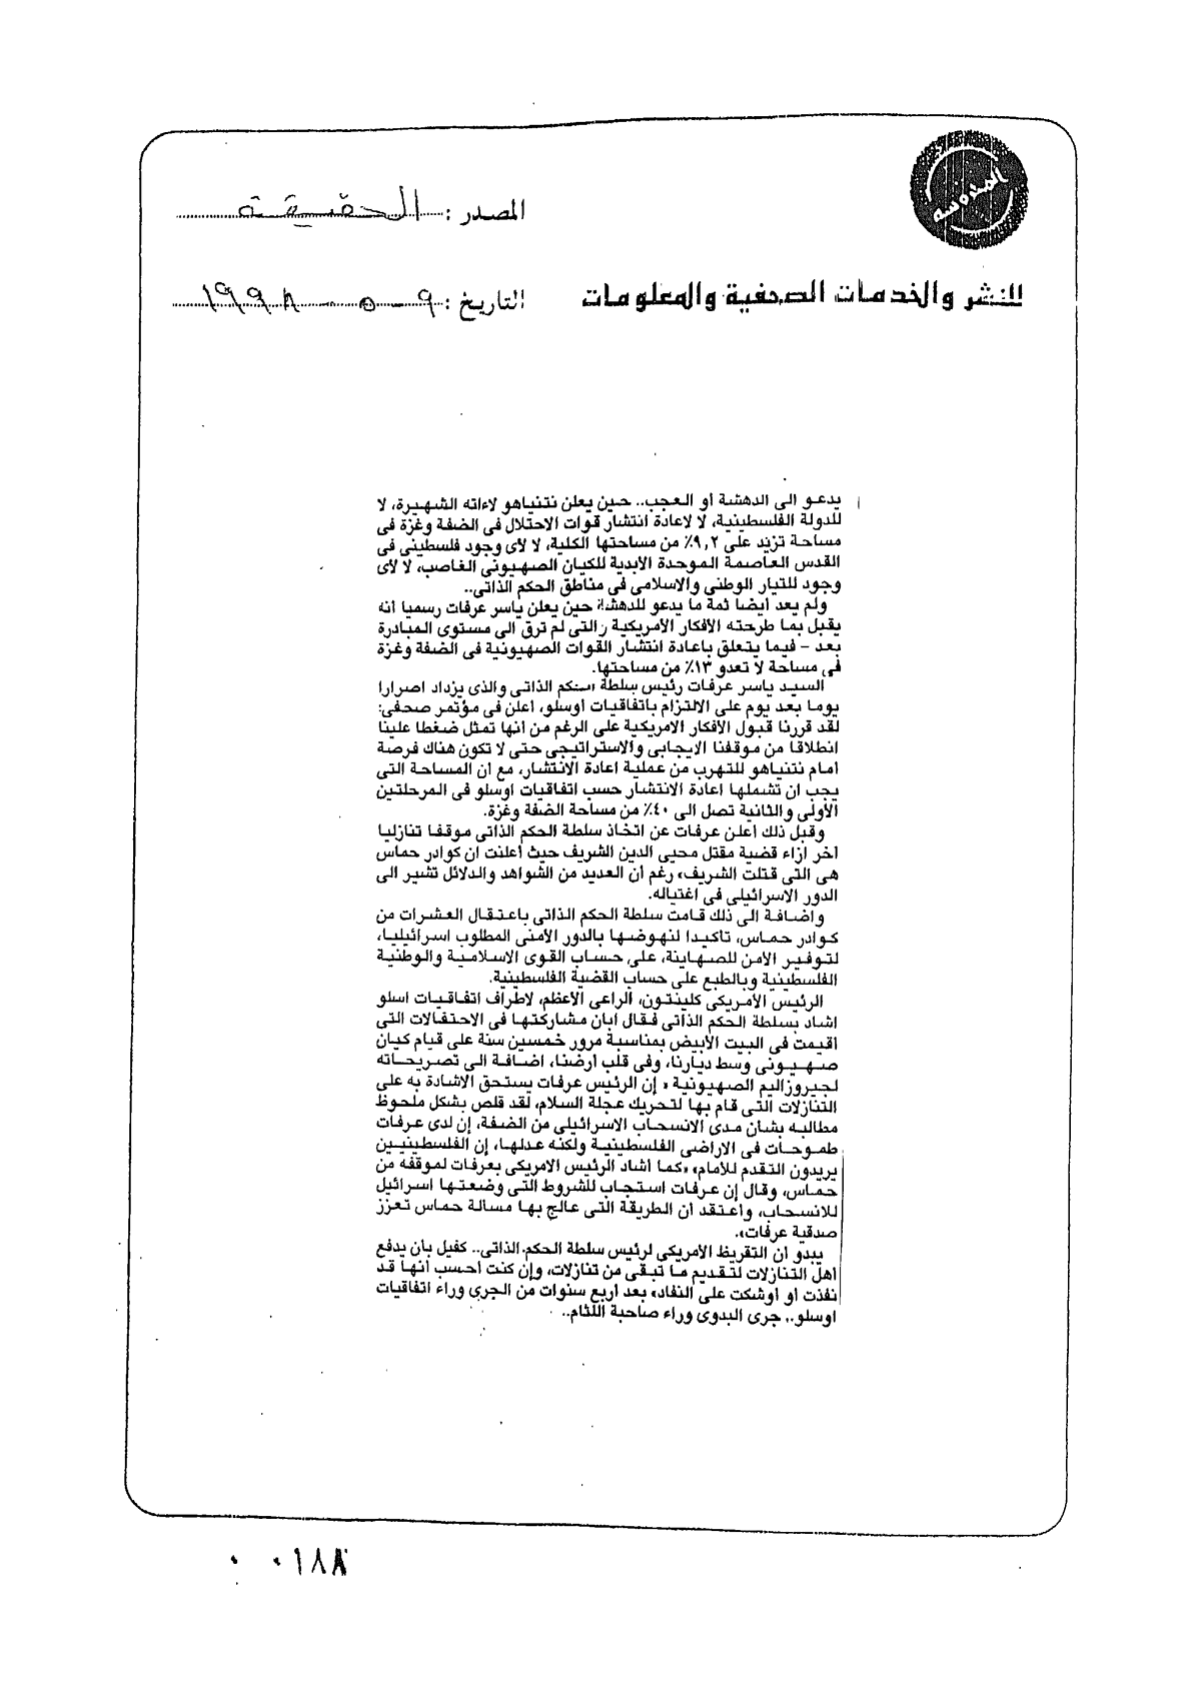 المدونة
المصدر : الحقيقة
للنشر والخدمات الصحفية والمعلومات
التاريخ : ٩ - ٥ - ١٩٩٨
يدعو الى الدهشة أو العجب.. حين يعلن نتنياهو لاءاته الشهيرة، لا
للدولة الفلسطينية، لا لاعادة انتشار قوات الاحتلال فى الضفة وغزة فى
مساحة تزيد على ٩,٢٪ من مساحتها الكلية، لا لأى وجود فلسطينى فى
القدس العاصمة الموحدة الأبدية للكيان الصهيونى الغاصب، لا لأى
وجود للتيار الوطنى والاسلامى فى مناطق الحكم الذاتى..
ولم يعد أيضا ثمة ما يدعو للدهشة حين يعلن ياسر عرفات رسميا أنه
يقبل بما طرحته الأفكار الأمريكية والتى لم ترق الى مستوى المبادرة
بعد - فيما يتعلق باعادة انتشار القوات الصهيونية فى الضفة وغزة
فى مساحة لا تعدو ١٣٪ من مساحتها.
السيد ياسر عرفات رئيس سلطة الحكم الذاتى والذى يزداد اصرارا
يوما بعد يوم على الالتزام باتفاقيات أوسلو، أعلن فى مؤتمر صحفى:
لقد قررنا قبول الأفكار الامريكية على الرغم من أنها تمثل ضغطا علينا
انطلاقا من موقفنا الايجابى والاستراتيجى حتى لا تكون هناك فرصة
امام نتنياهو للتهرب من عملية اعادة الانتشار، مع أن المساحة التى
يجب ان تشملها اعادة الانتشار حسب اتفاقيات أوسلو فى المرحلتين
الأولى والثانية تصل الى ٤٠٪ من مساحة الضفة وغزة.
وقبل ذلك أعلن عرفات عن اتخاذ سلطة الحكم الذاتى موقفا تنازليا
آخر ازاء قضية مقتل محيى الدين الشريف حيث أعلنت ان كوادر حماس
هى التى قتلت الشريف، رغم أن العديد من الشواهد والدلائل تشير الى
الدور الاسرائيلى فى اغتياله.
واضافة الى ذلك قامت سلطة الحكم الذاتى باعتقال العشرات من
كوادر حماس، تأكيدا لنهوضها بالدور الأمنى المطلوب اسرائيليا،
لتوفير الأمن للصهاينة، على حساب القوى الاسلامية والوطنية
الفلسطينية وبالطبع على حساب القضية الفلسطينية.
الرئيس الأمريكى كلينتون، الراعى الأعظم، لاطراف اتفاقيات اسلو
اشاد بسلطة الحكم الذاتى فقال ابان مشاركتها فى الاحتفالات التى
اقيمت فى البيت الأبيض بمناسبة مرور خمسين سنة على قيام كيان
صهيونى وسط ديارنا، وفى قلب ارضنا، اضافة الى تصريحاته
لجيروزاليم الصهيونية « إن الرئيس عرفات يستحق الاشادة به على
التنازلات التى قام بها لتحريك عجلة السلام، لقد قلص بشكل ملحوظ
مطالبه بشأن مدى الانسحاب الاسرائيلى من الضفة، إن لدى عرفات
طموحات فى الاراضى الفلسطينية ولكنه عدلها، إن الفلسطينيين
يريدون التقدم للأمام» «كما أشاد الرئيس الامريكى بعرفات لموقفه من
حماس، وقال إن عرفات استجاب للشروط التى وضعتها اسرائيل
للانسحاب، وأعتقد ان الطريقة التى عالج بها مسألة حماس تعزز
صدقية عرفات».
يبدو أن التقريظ الأمريكى لرئيس سلطة الحكم الذاتى.. كفيل بأن يدفع
أهل التنازلات لتقديم ما تبقى من تنازلات، وإن كنت أحسب أنها قد
نفذت أو أوشكت على النفاد، بعد أربع سنوات من الجرى وراء اتفاقيات
أوسلو.. جرى البدوى وراء صاحبة اللثام..
٠٠١٨٨